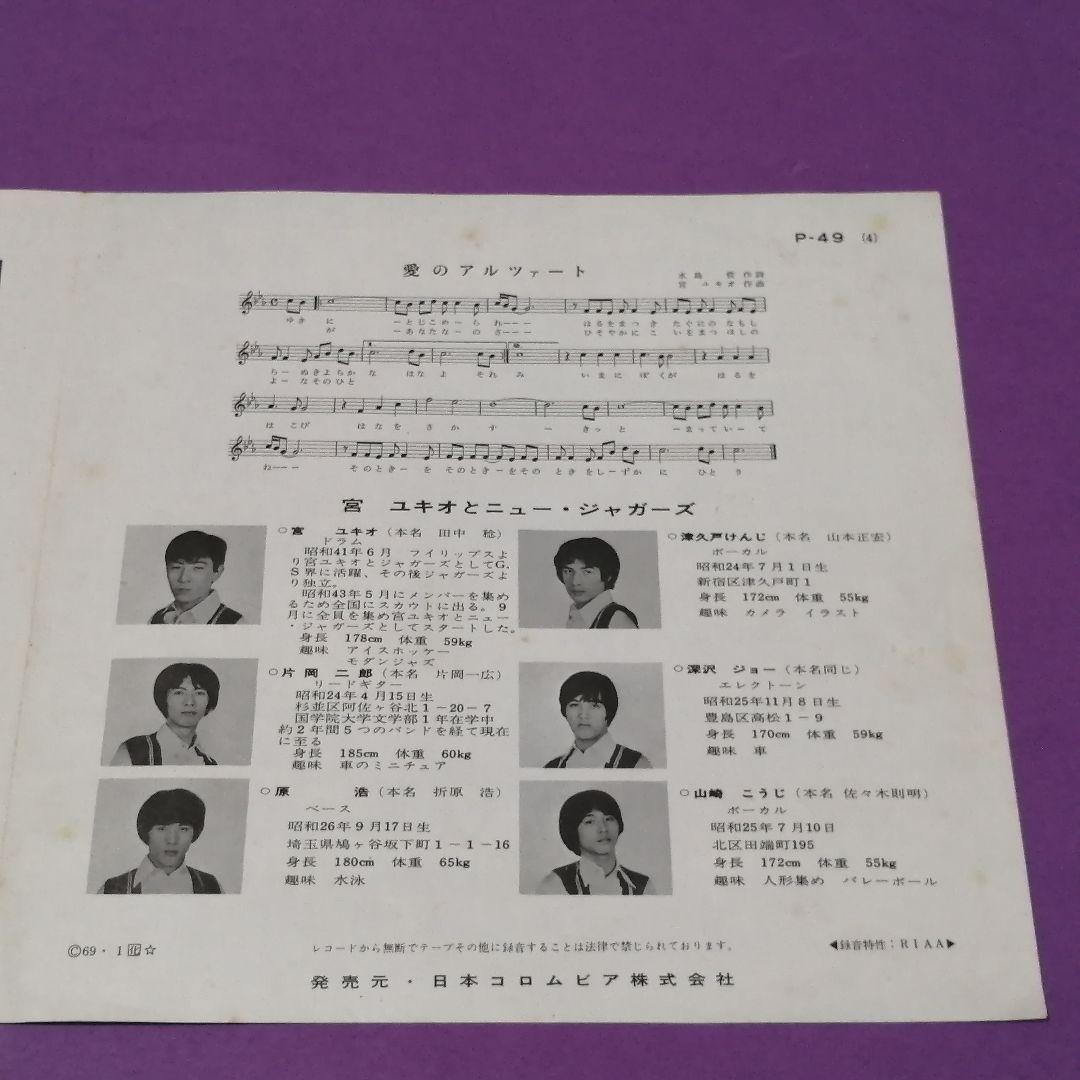 P-49 (4)
愛のアルツァート
水島 哲 作詩
宮 ユキオ 作曲
ゆき に ーとじこめーられーー はるをまつ き たぐにの なもし
が ーあなたなーの さーー ひそやかに こ いをまつ ほしの
らー ぬきよらかな はなよ それみ いまに ぼくが はるを
よー なそのひと
はこび はなを さかす ー きっと ーまっていーて
ねーー そのときー を そのときーをその ときをしーずかに ひとり
宮 ユキオとニュー・ジャガーズ
○宮 ユキオ(本名 田中 稔)
ドラム
昭和41年6月 フイリップスよ
り宮ユキオとジャガーズとしてG.
S界に活躍、その後ジャガーズよ
り独立。
昭和43年5月にメンバーを集め
るため全国にスカウトに出る。9
月に全員を集め宮ユキオとニュー
・ジャガーズとしてスタートした。
身長 178cm 体重 59kg
趣味 アイスホッケー
モダンジャズ
○片岡二郎(本名 片岡一広)
リードギター
昭和24年4月15日生
杉並区阿佐ヶ谷北1-20-7
国学院大学文学部1年在学中
約2年間5つのバンドを経て現在
に至る
身長 185cm 体重 60kg
趣味 車のミニチュア
○原 浩(本名 折原 浩)
ベース
昭和26年9月17日生
埼玉県鳩ヶ谷坂下町1-1-16
身長 180cm 体重 65kg
趣味 水泳
○津久戸けんじ(本名 山本正宏)
ボーカル
昭和24年7月1日生
新宿区津久戸町1
身長 172cm 体重 55kg
趣味 カメラ イラスト
○深沢 ジョー(本名同じ)
エレクトーン
昭和25年11月8日生
豊島区高松1-9
身長 170cm 体重 59kg
趣味 車
○山崎 こうじ(本名 佐々木則明)
ボーカル
昭和25年7月10日
北区田端町195
身長 172cm 体重 55kg
趣味 人形集め バレーボール
Ⓒ69・1 ☆
レコードから無断でテープその他に録音することは法律で禁じられております。
◀録音特性:RIAA▶
発売元・日本コロムビア株式会社